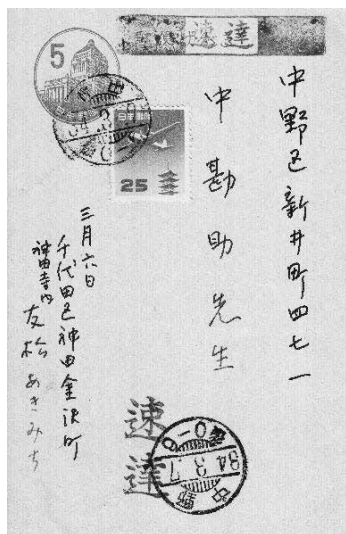 速達
5
日本郵便
25
中野区新井町四七一
中勘助先生
三月六日
千代田区神田金沢町
神田寺内
友松あきみち
速達
中野
34.3.7